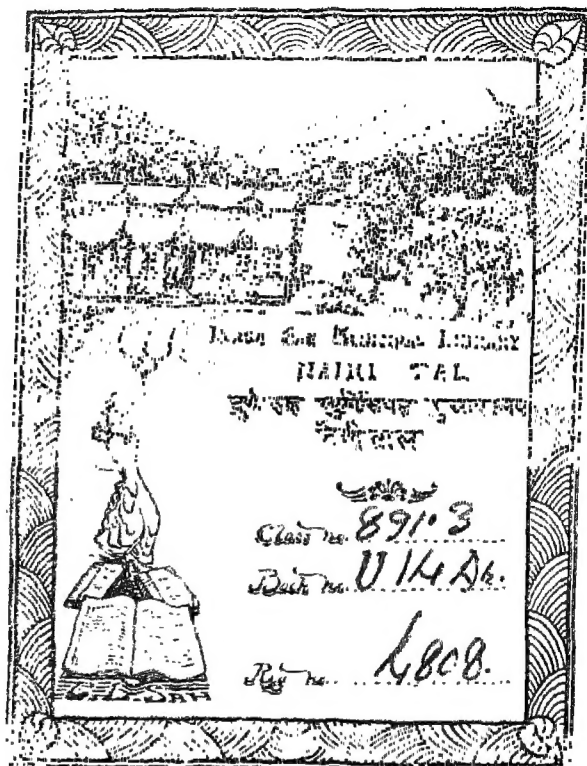 DURGA SAH MUNICIPAL LIBRARY
NAINI TAL
दुर्गा साह म्युनिसिपल पुस्तकालय
नैनीताल
Class no. 891.3
Book no. U 14 Dh.
Reg no. 4808.